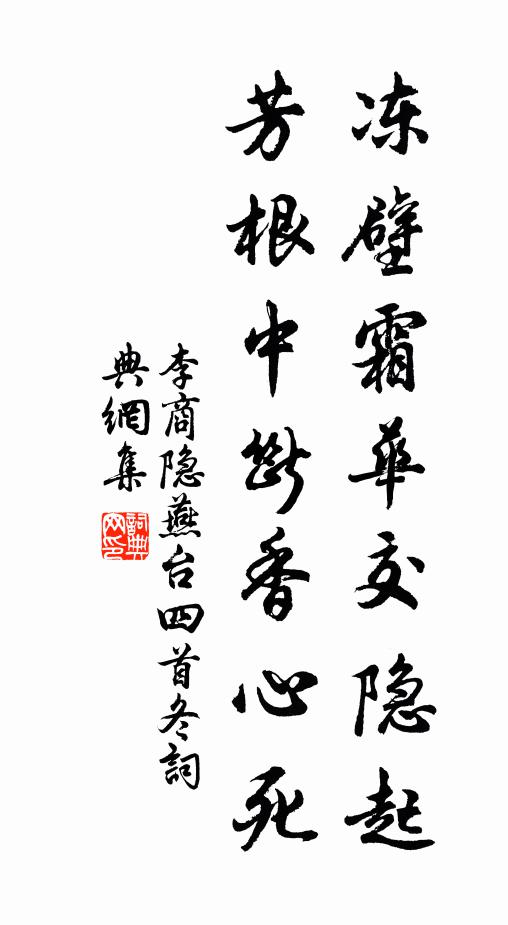 冻壁霜華交隐起
芳根中斷香心死
李商隐燕台四首冬詞
典網集
詞典网印